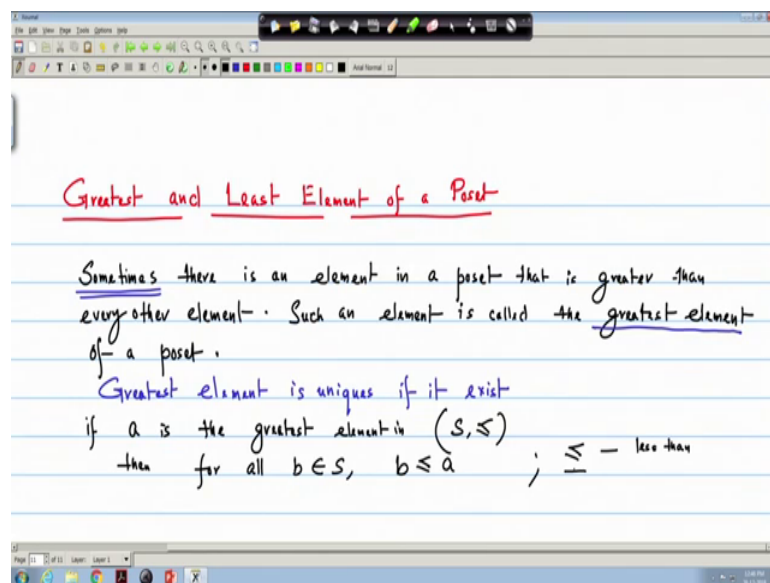 Journal
File Edit View Page Tools Options Help
Arial Normal 12
Greatest and Least Element of a Poset
Sometimes there is an element in a poset that is greater than
every other element. Such an element is called the greatest element
of a poset.
Greatest element is uniques if it exist
if a is the greatest element in (S, ≤)
then for all b ∈ S, b ≤ a ; ≤ - less than
Page 11 of 11 Layer: Layer 1